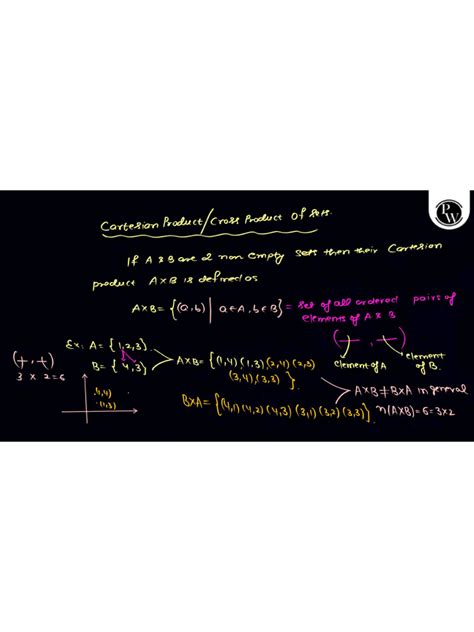 PW
Cartesian Product/Cross Product of sets.
If A & B are 2 non empty sets then their Cartesian
product A×B is defined as
A×B = {(a,b) | a∈A, b∈B} = set of all ordered pairs of
elements of A & B
(+, +)
Ex: A = {1,2,3}.
B = {4,3}
element of A
element of B.
(+,+)
3 × 2 = 6
A×B = {(1,4)(1,3)(2,4)(2,3)
(3,4)(3,3)}
B×A = {(4,1)(4,2)(4,3)(3,1)(3,2)(3,3)}.
A×B ≠ B×A in general
n(A×B) = 6 = 3×2
(1,4)
(1,3)